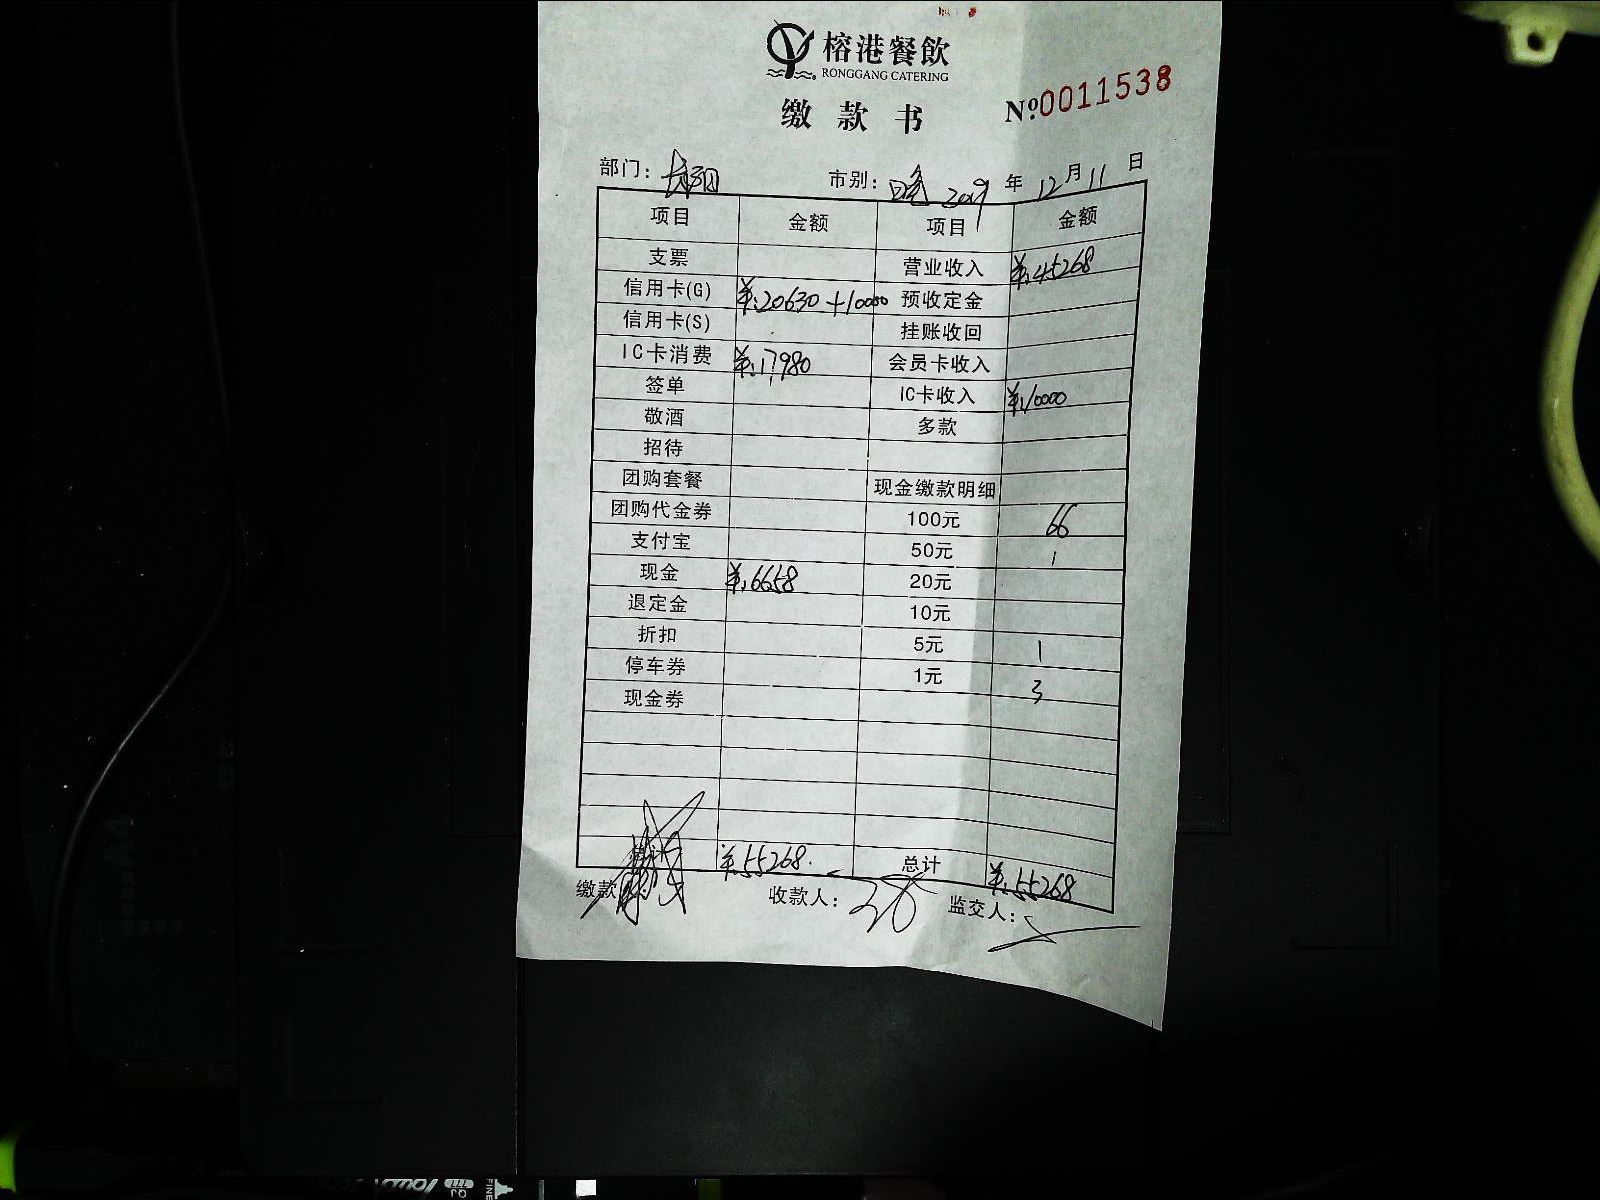 榕港餐飲
RONGGANG CATERING
缴款书 №0011538
部门： 市别：晚 2019 年 12 月 11 日
项目 金额 项目 金额
支票 营业收入 ¥:45268
信用卡(G) ¥:20630+10000 预收定金
信用卡(S) 挂账收回
IC卡消费 ¥:17980 会员卡收入
签单 IC卡收入 ¥:10000
敬酒 多款
招待
团购套餐 现金缴款明细
团购代金券 100元 66
支付宝 50元 1
现金 ¥:6658 20元
退定金 10元
折扣 5元 1
停车券 1元 3
现金券
¥:55268. 总计 ¥:55268
缴款 收款人： 监交人：